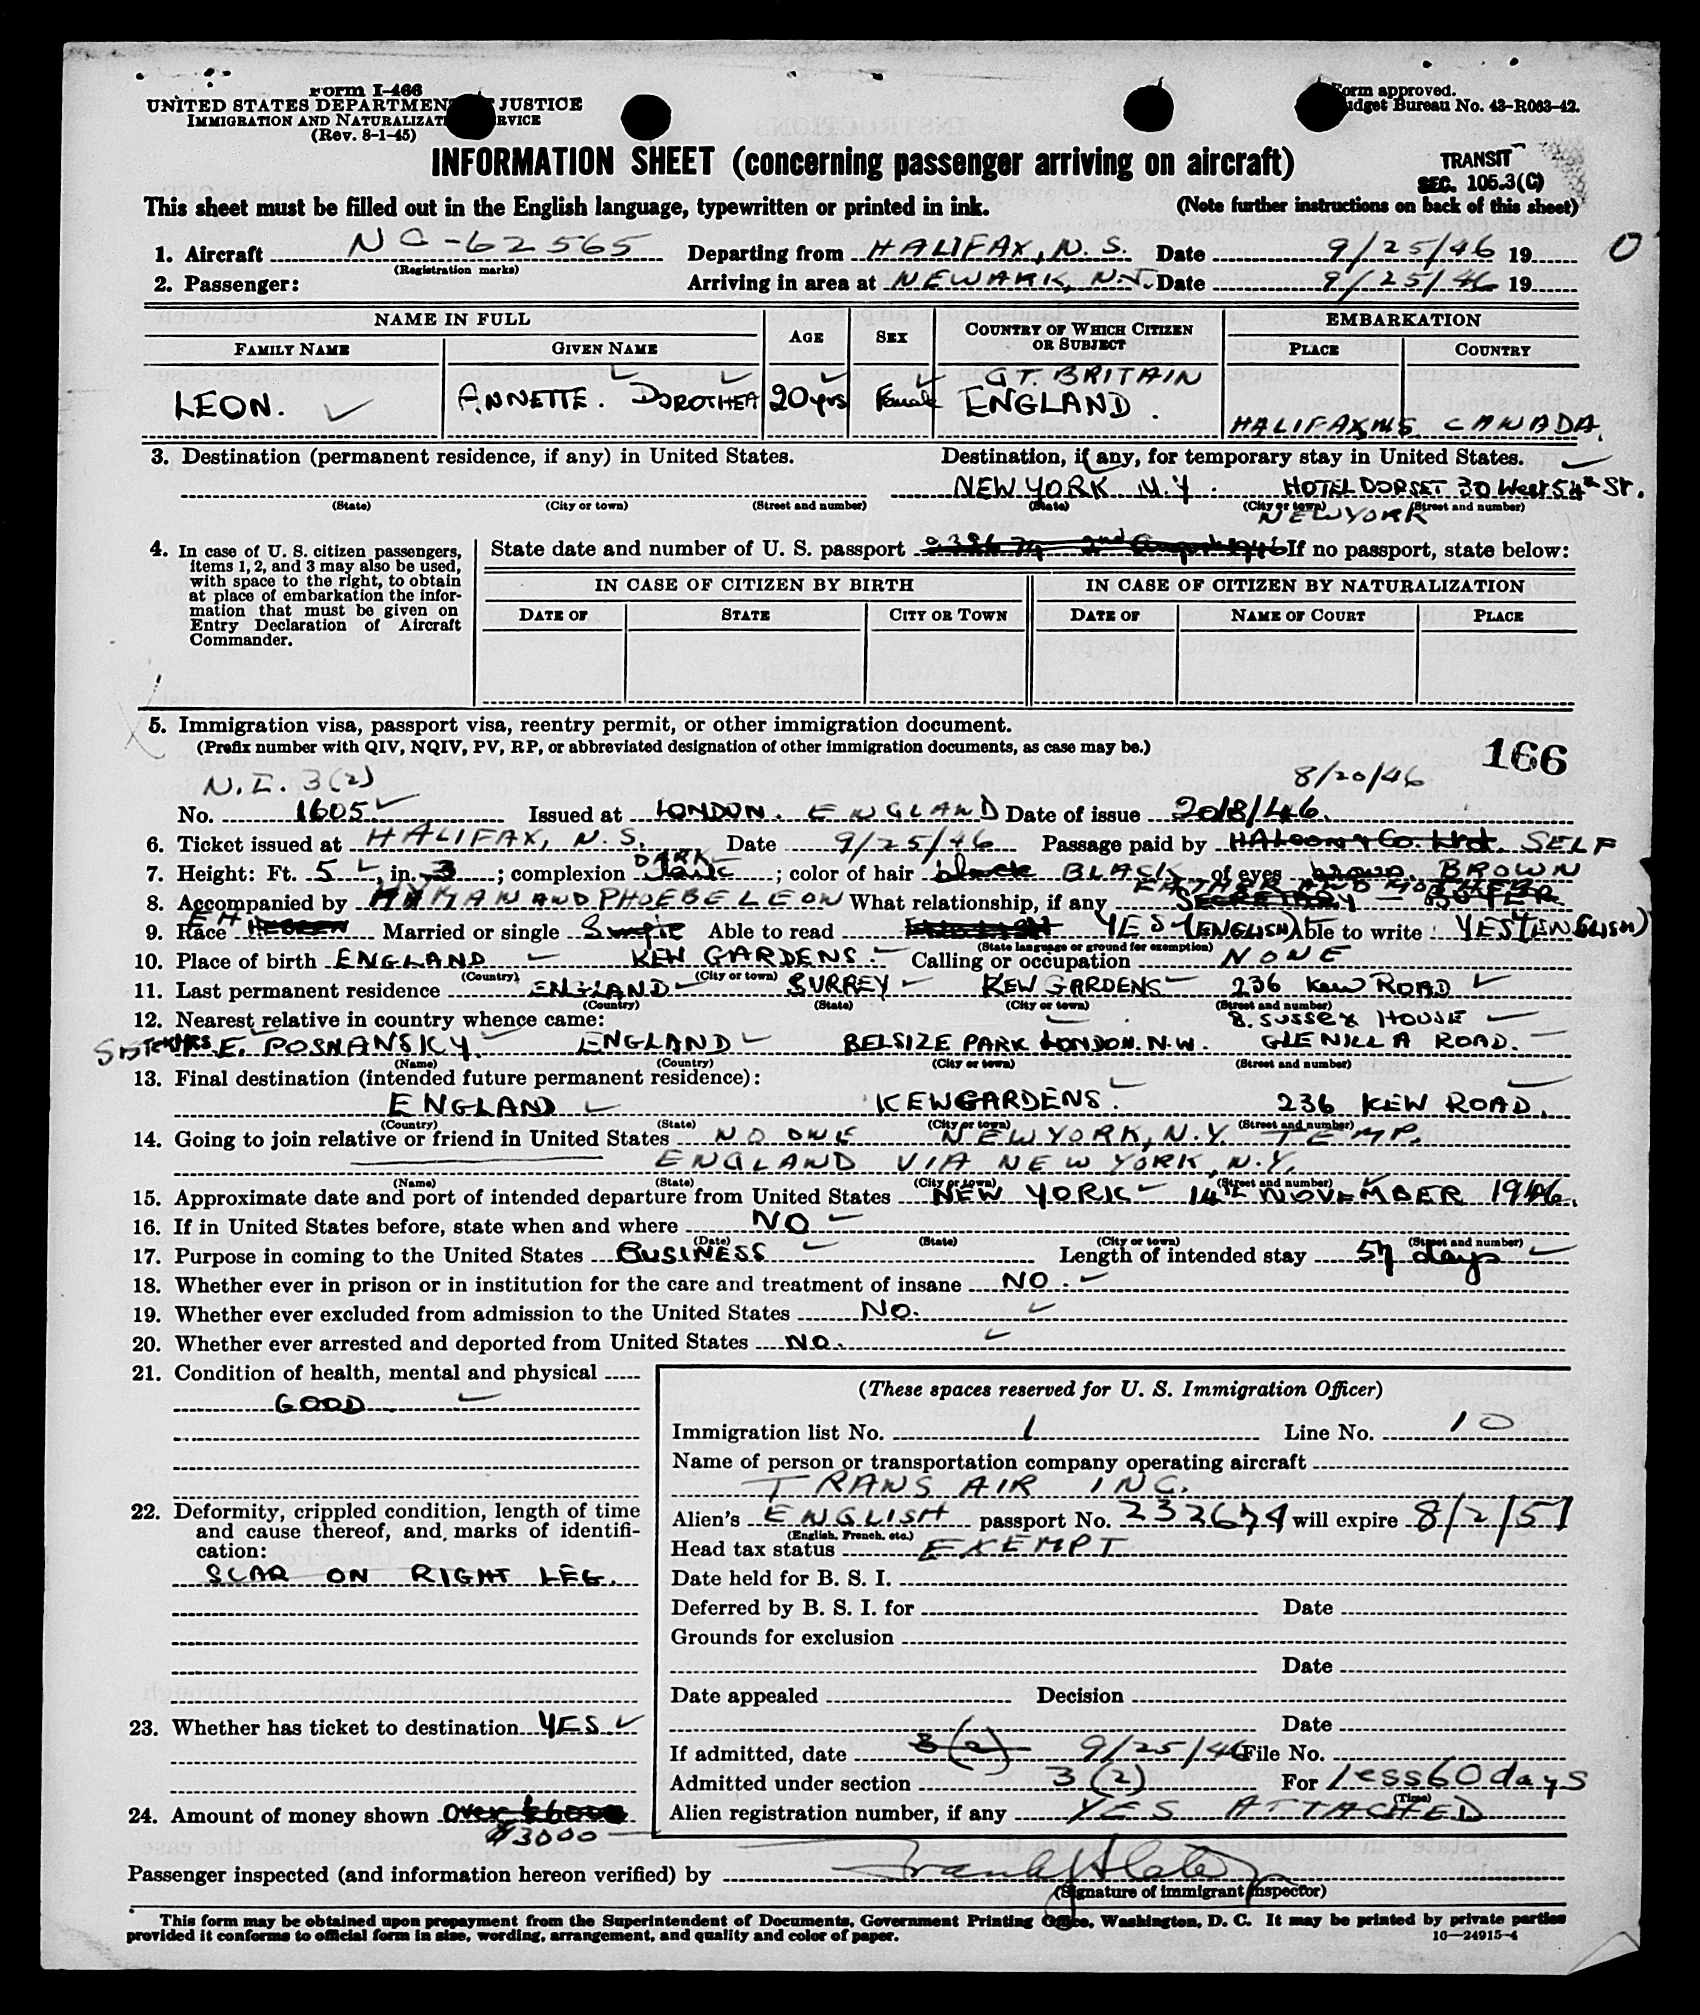 Form I-466
UNITED STATES DEPARTMENT JUSTICE
IMMIGRATION AND NATURALIZAT RVICE
(Rev. 8-1-45)
Form approved.
Budget Bureau No. 43-R063-42.
INFORMATION SHEET (concerning passenger arriving on aircraft)
TRANSIT
SEC. 105.3(C)
This sheet must be filled out in the English language, typewritten or printed in ink. (Note further instructions on back of this sheet)
1. Aircraft NC-62565 Departing from HALIFAX, N.S. Date 9/25/46 19 0
(Registration marks)
2. Passenger: Arriving in area at NEWARK, N.J. Date 9/25/46 19
NAME IN FULL AGE SEX COUNTRY OF WHICH CITIZEN OR SUBJECT EMBARKATION
FAMILY NAME GIVEN NAME PLACE COUNTRY
GT. BRITAIN
LEON. ANNETTE. DOROTHEA 20 yrs Female ENGLAND.
HALIFAX NS CANADA.
3. Destination (permanent residence, if any) in United States. Destination, if any, for temporary stay in United States.
NEW YORK N.Y. HOTEL DORSET 30 West 54th St.
(State) (City or town) (Street and number) (State) (City or town) (Street and number)
NEW YORK
4. In case of U. S. citizen passengers, items 1, 2, and 3 may also be used, with space to the right, to obtain at place of embarkation the information that must be given on Entry Declaration of Aircraft Commander.
State date and number of U. S. passport If no passport, state below:
IN CASE OF CITIZEN BY BIRTH IN CASE OF CITIZEN BY NATURALIZATION
DATE OF STATE CITY OR TOWN DATE OF NAME OF COURT PLACE
5. Immigration visa, passport visa, reentry permit, or other immigration document.
(Prefix number with QIV, NQIV, PV, RP, or abbreviated designation of other immigration documents, as case may be.)
166
N.I. 3(2) 8/20/46
No. 1605 Issued at LONDON. ENGLAND Date of issue 20/8/46.
6. Ticket issued at HALIFAX, N.S. Date 9/25/46 Passage paid by SELF
7. Height: Ft. 5, in. 3; complexion DARK; color of hair black BLACK of eyes brown. BROWN
8. Accompanied by HYMAN AND PHOEBE LEON What relationship, if any SECRETARY FATHER AND MOTHER
9. Race EH HEBREW Married or single Single Able to read YES (ENGLISH) Able to write YES (ENGLISH)
(State language or ground for exemption)
10. Place of birth ENGLAND KEW GARDENS. Calling or occupation NONE
(Country) (City or town)
11. Last permanent residence ENGLAND SURREY KEW GARDENS 236 KEW ROAD
(Country) (State) (City or town) (Street and number)
12. Nearest relative in country whence came: 8. SUSSEX HOUSE
SISTER MRS E. POSNANSKY. ENGLAND BELSIZE PARK LONDON. N.W. GLENILLA ROAD.
(Name) (Country) (City or town) (Street and number)
13. Final destination (intended future permanent residence):
ENGLAND KEW GARDENS. 236 KEW ROAD.
(Country) (State) (City or town) (Street and number)
14. Going to join relative or friend in United States NO ONE NEW YORK, N.Y. TEMP.
ENGLAND VIA NEW YORK, N.Y.
(Name) (State) (City or town) (Street and number)
15. Approximate date and port of intended departure from United States NEW YORK 14th NOVEMBER 1946.
16. If in United States before, state when and where NO
(Date) (State) (City or town) (Street and number)
17. Purpose in coming to the United States BUSINESS Length of intended stay 57 days
18. Whether ever in prison or in institution for the care and treatment of insane NO.
19. Whether ever excluded from admission to the United States NO.
20. Whether ever arrested and deported from United States NO.
21. Condition of health, mental and physical
GOOD.
22. Deformity, crippled condition, length of time and cause thereof, and marks of identification:
SCAR ON RIGHT LEG.
23. Whether has ticket to destination YES
24. Amount of money shown
$3000
(These spaces reserved for U. S. Immigration Officer)
Immigration list No. 1 Line No. 10
Name of person or transportation company operating aircraft
TRANS AIR INC.
Alien's ENGLISH passport No. 232674 will expire 8/2/51
(English, French, etc.)
Head tax status EXEMPT
Date held for B. S. I.
Deferred by B. S. I. for Date
Grounds for exclusion
Date
Date appealed Decision
Date
If admitted, date 3(2) 9/25/46 File No.
Admitted under section 3(2) For less 60 days
(Time)
Alien registration number, if any YES ATTACHED
Passenger inspected (and information hereon verified) by
(Signature of immigrant inspector)
This form may be obtained upon prepayment from the Superintendent of Documents, Government Printing Office, Washington, D. C. It may be printed by private parties
provided it conforms to official form in size, wording, arrangement, and quality and color of paper. 16—24915-4